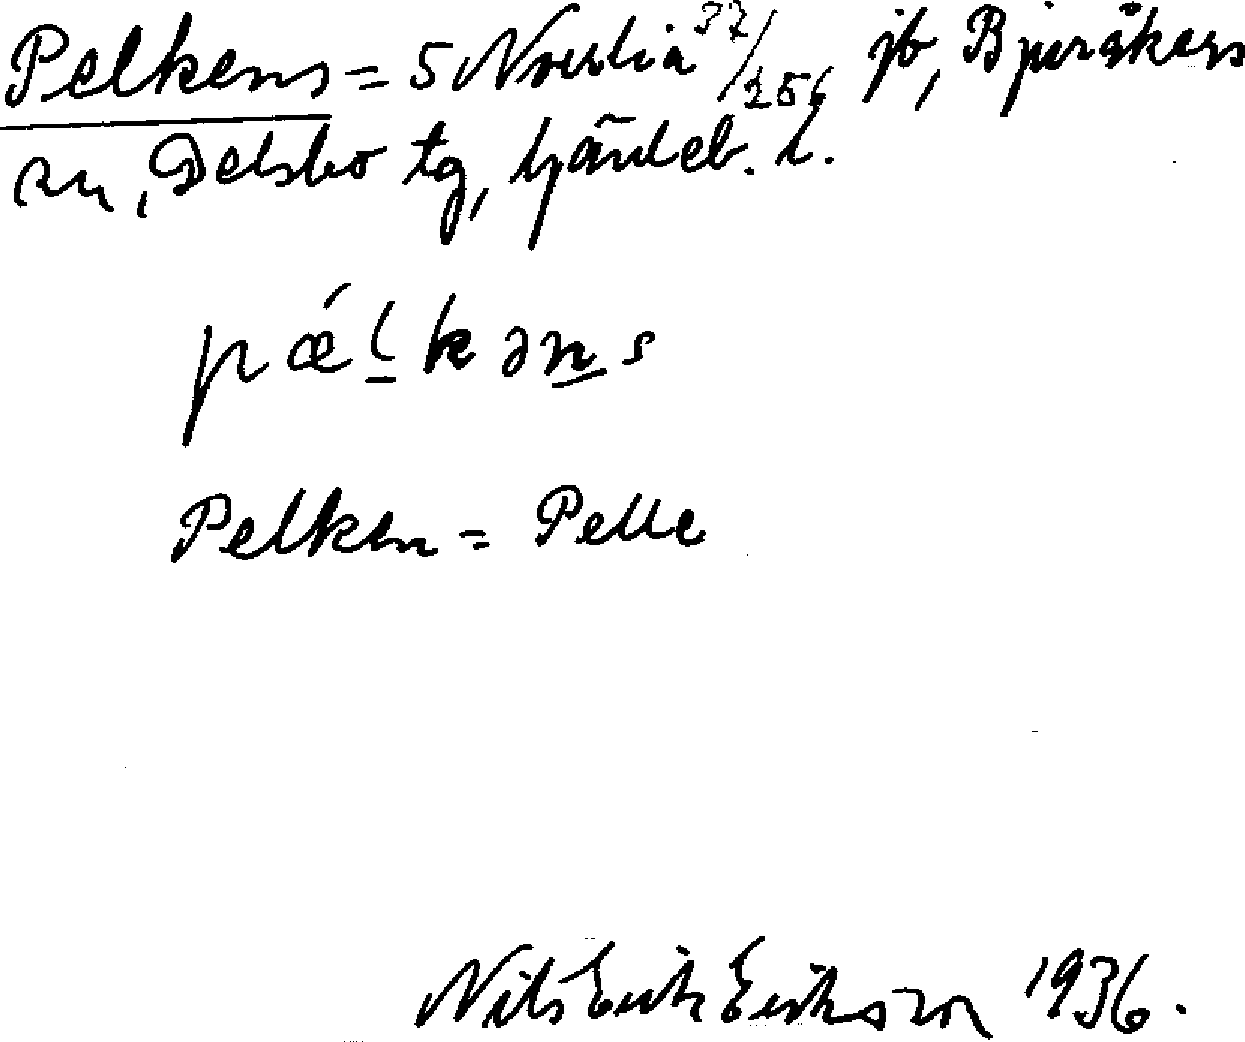 Pelkens = 5 Norrlia 37/256 jb, Bjuråkers
sn, Delsbo tg, Gävleb. l.
pǽl̠kən̠s
Pelken = Pelle
Nils Erik Eriksson 1936.